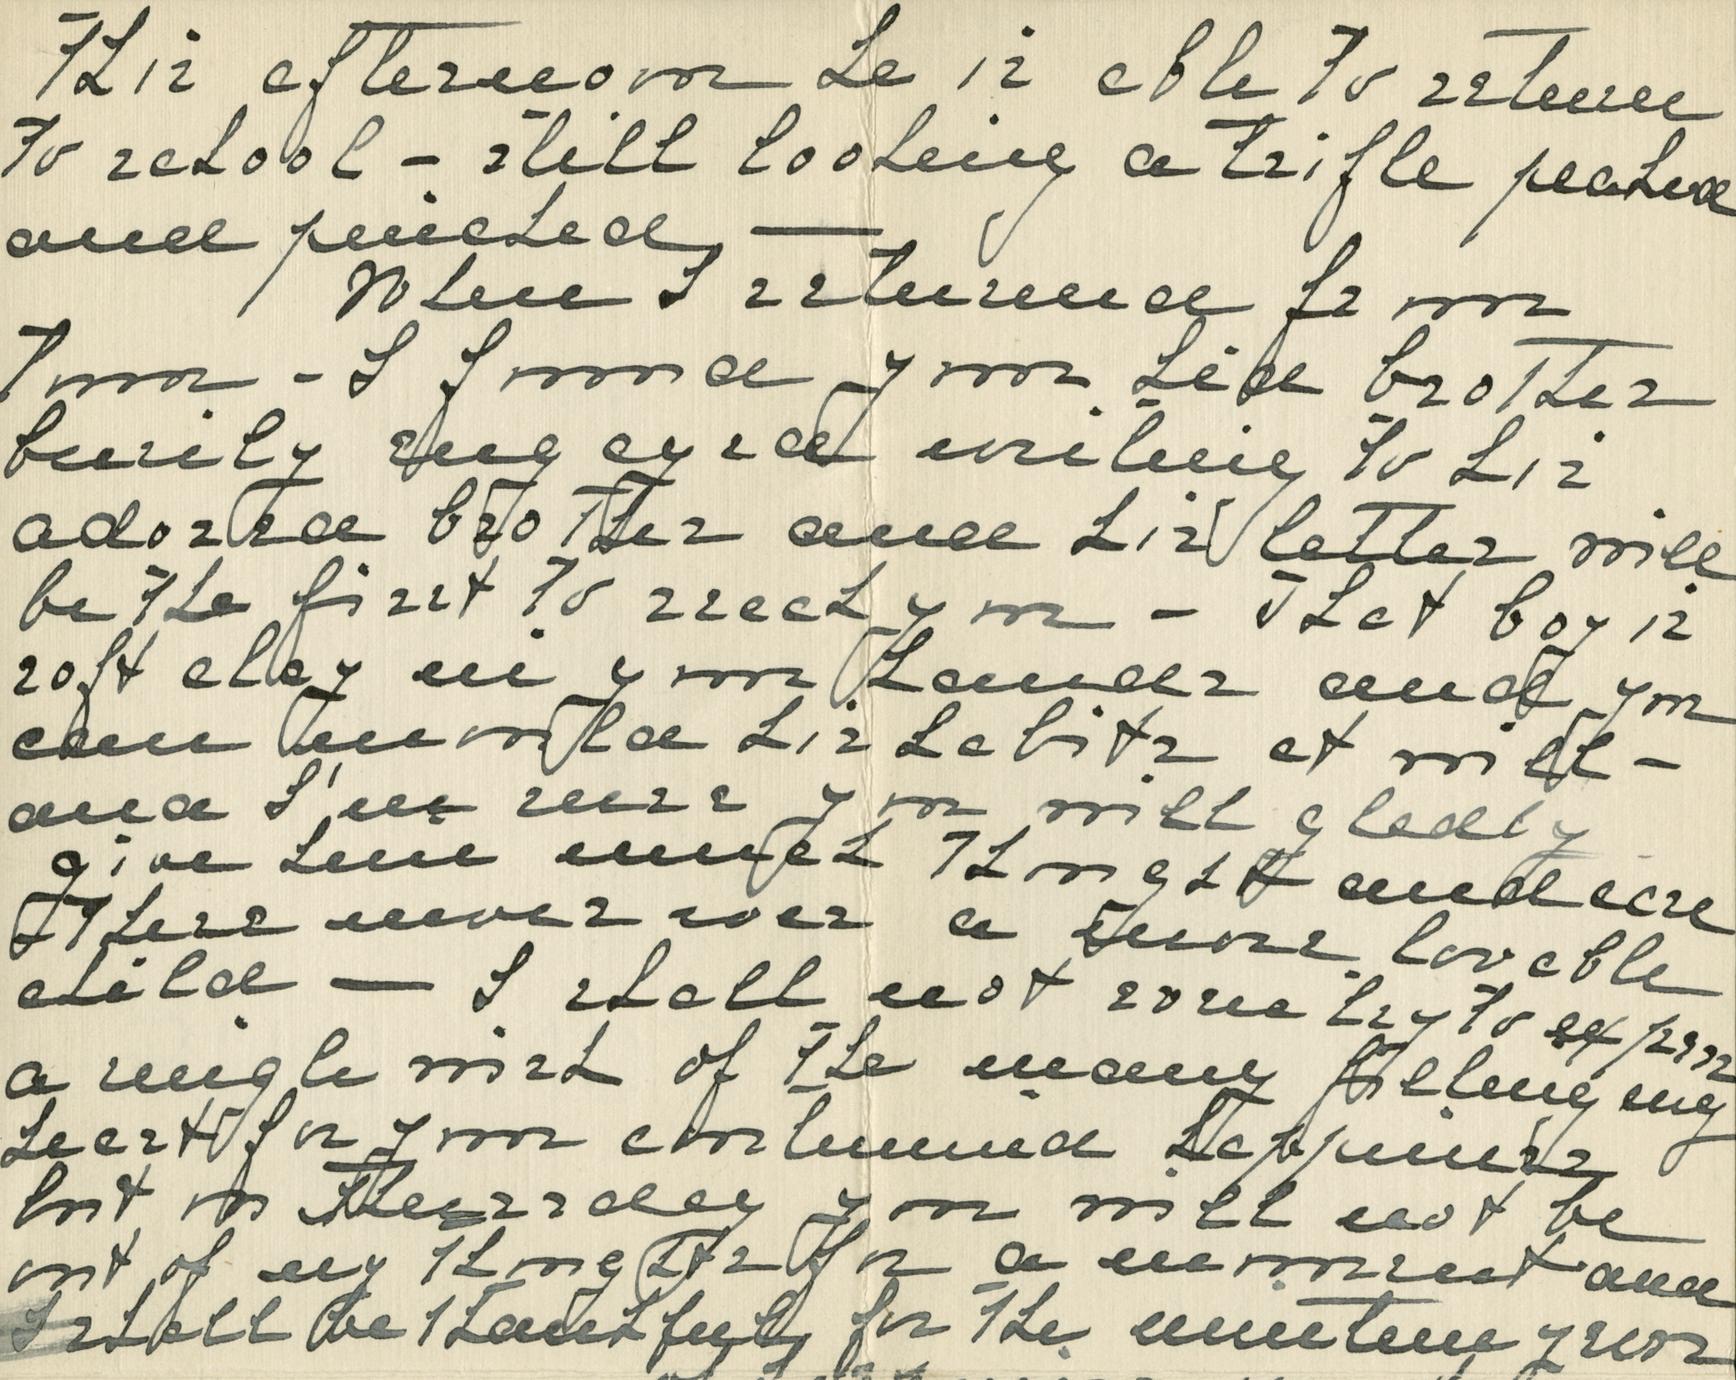 This afternoon he is able to return
to school - still looking a trifle peaked
and pinched, —
When I returned from
Town - I found your kid brother
busily engaged writing to his
adored brother and his letter will
be the first to reach you - That boy is
soft clay in your hands and you
can mould his habits at will -
and I'm sure you will gladly
give him much thought and care
There never was a more lovable
child — I shall not son try to express
a single wish of the many filling my
heart for your continued happiness
but on Thursday you will not be
out of my thoughts for a moment and
I shall be thankful for the nineteen years